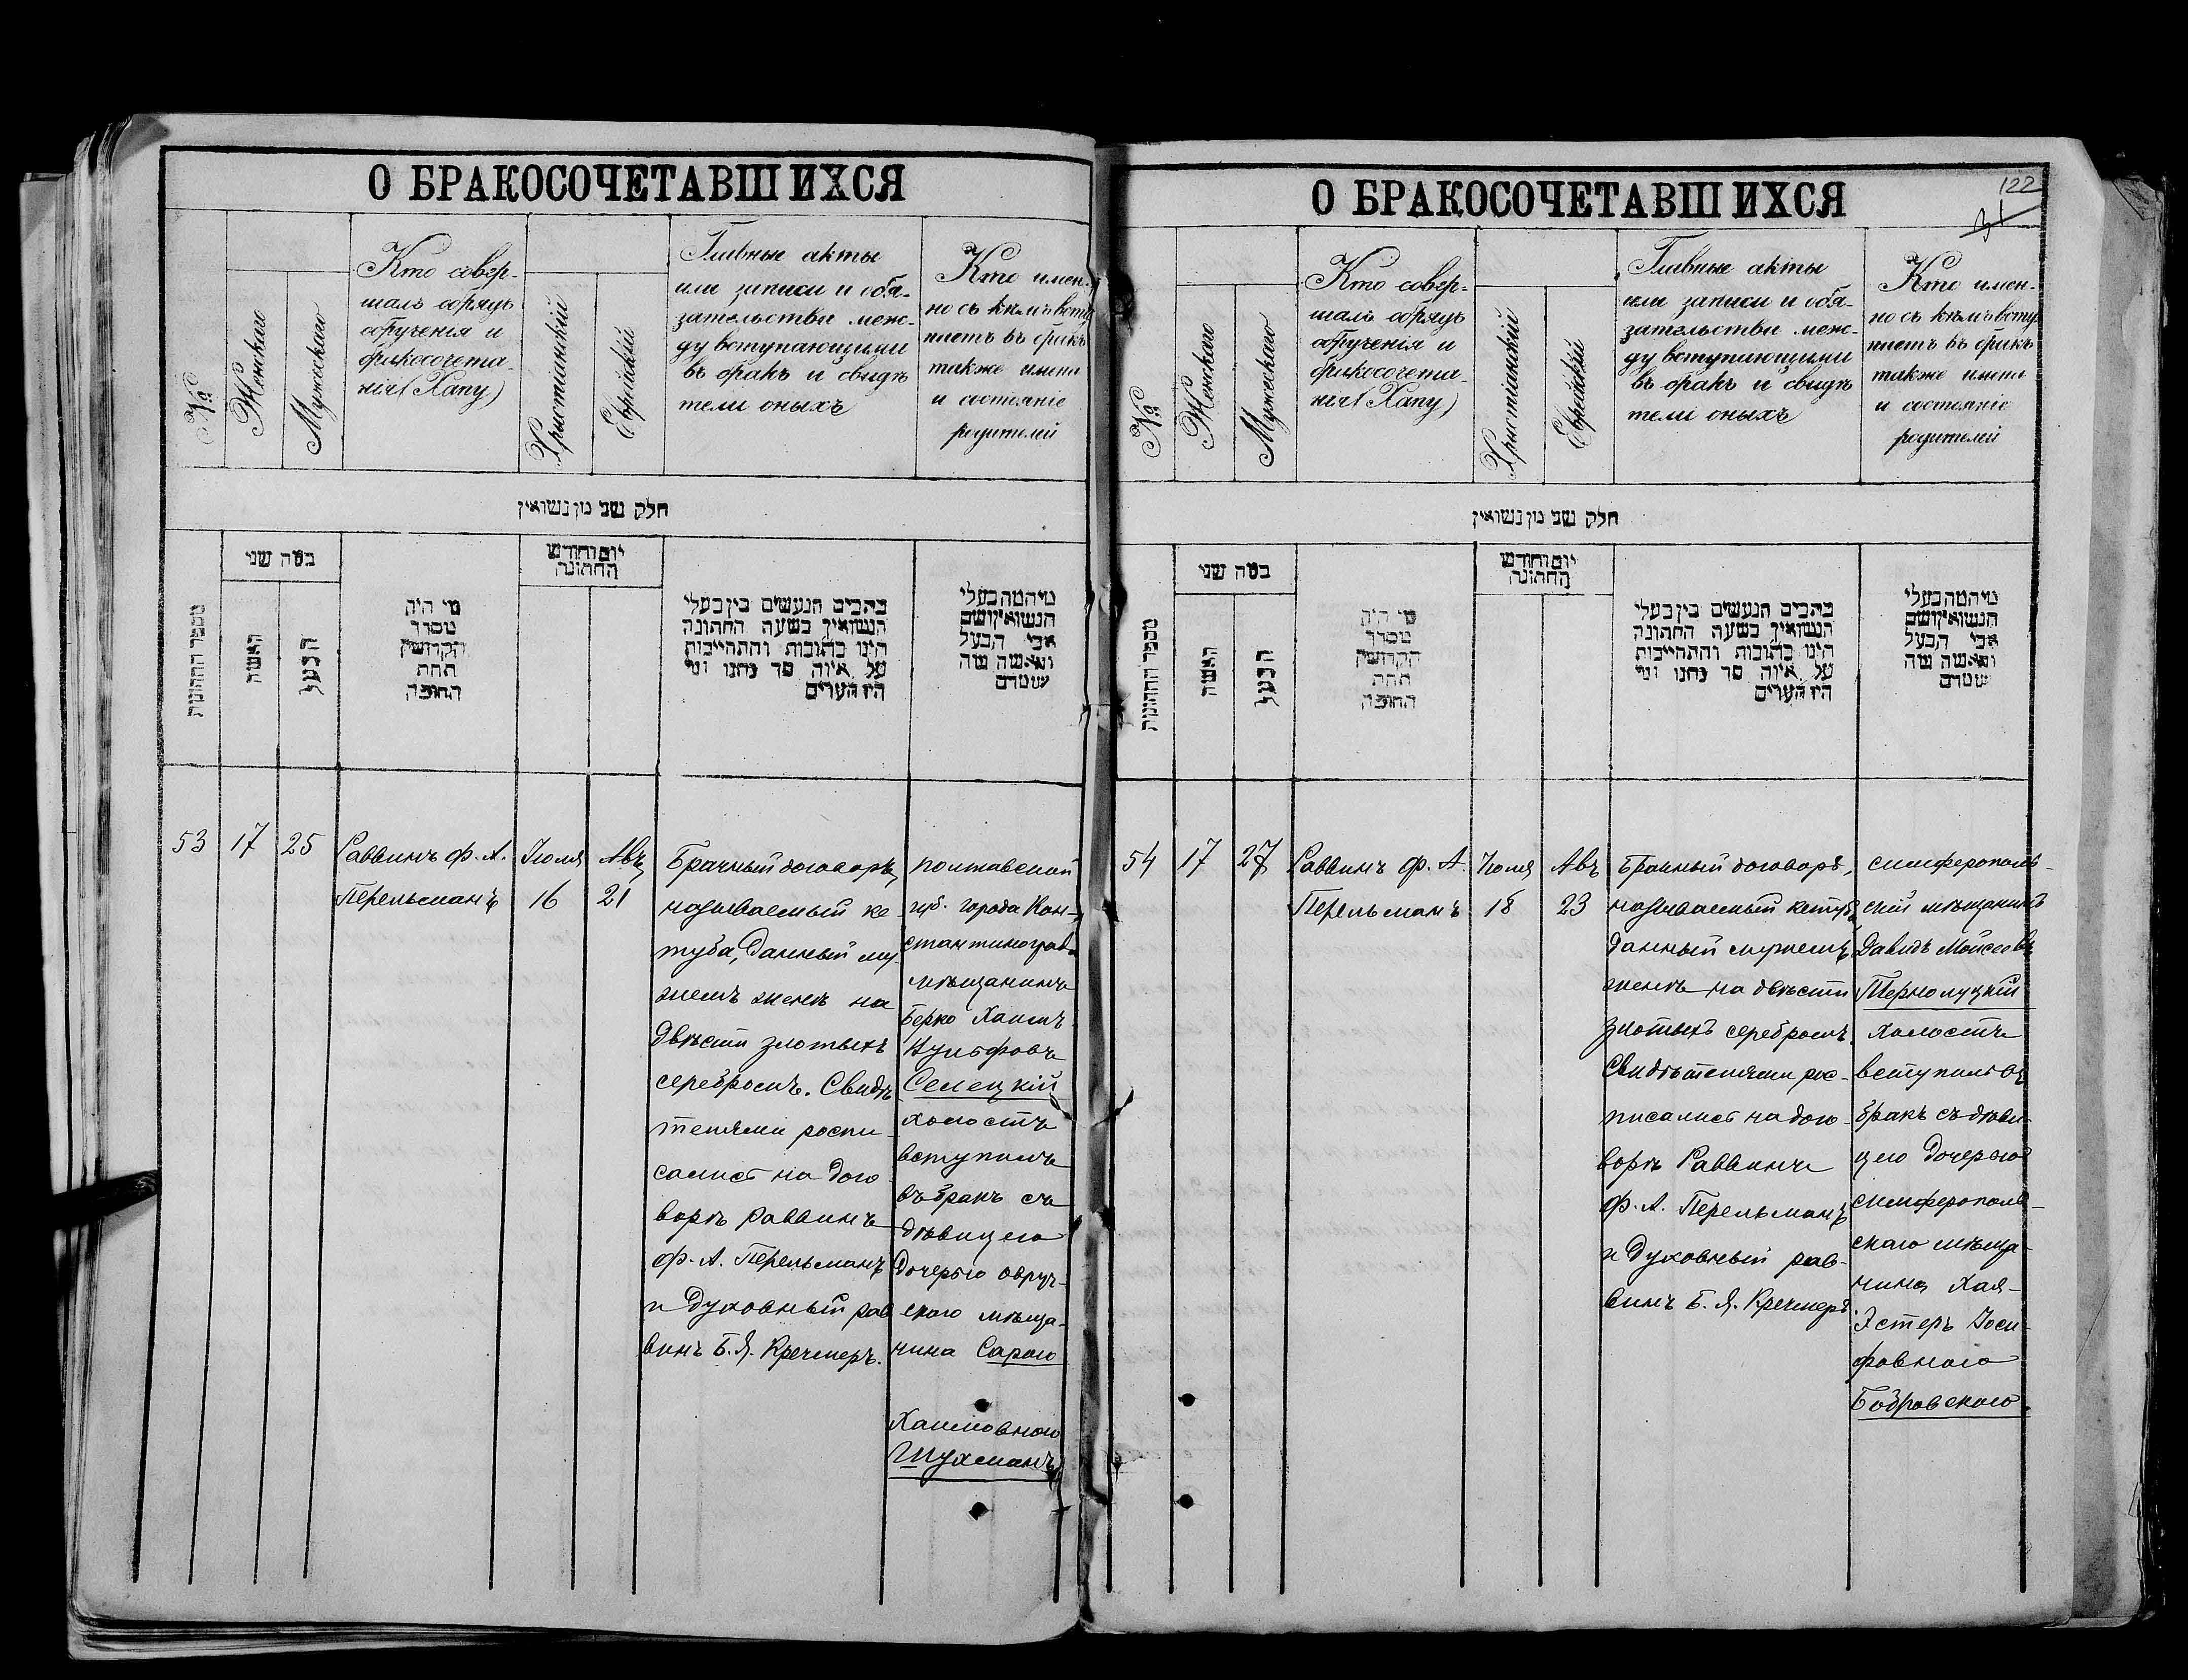 О БРАКОСОЧЕТАВШИХСЯ
№
Женскаго
Мужескаго
Кто совер-
шалъ обрядъ
обрученія и
бракосочета-
нія (Хапу)
Христіанскій
Еврейскій
Главные акты
или записи и обя-
зательства меж-
ду вступающими
въ бракъ и свидѣ
тели оныхъ
Кто имен-
но съ кѣмъ всту
паетъ въ бракъ
также имена
и состояніе
родителей
חלק שני מן נשואין
מספר החתונות
במה שני
האשה
הבעל
מי היה
מסדר
הקדושין
תחת
החופה
יום וחודש
החתונה
כתבים הנעשים בין בעלי
הנשואין בשעה החתונה
היינו כתובות והתחייבות
על איזה סך נתנו ומי
היו העדים
מי המה בעלי
הנשואין ושם
אבי הבעל
והאשה מה
שמדם
53
17
25
Раввинъ Ф. А.
Перельманъ
Іюля
16
Авъ
21
Брачный договоръ,
называемый ке-
туба, данный му-
жемъ женѣ на
двѣсти злотыхъ
серебромъ. Свидѣ
телями роспи-
сались на дого-
ворѣ раввинъ
Ф. А. Перельманъ
и Духовный рав
винъ Б. Я. Кречмеръ.
полтавской
губ. города Кон-
стантиноград
мѣщанинъ
Берко Хаимъ
Вульфовъ
Селецкій
холостъ
вступилъ
въ бракъ съ
дѣвицею
дочерью овруч-
скаго мѣща-
нина Сарою
Хаимовною
Шухманъ
О БРАКОСОЧЕТАВШИХСЯ
122
31
№
Женскаго
Мужескаго
Кто совер-
шалъ обрядъ
обрученія и
бракосочета-
нія (Хапу)
Христіанскій
Еврейскій
Главные акты
или записи и обя-
зательства меж-
ду вступающими
въ бракъ и свидѣ
тели оныхъ
Кто имен-
но съ кѣмъ всту
паетъ въ бракъ
также имена
и состояніе
родителей
חלק שני מן נשואין
מספר החתונות
במה שני
האשה
הבעל
מי היה
מסדר
הקדושין
תחת
החופה
יום וחודש
החתונה
כתבים הנעשים בין בעלי
הנשואין בשעה החתונה
היינו כתובות והתחייבות
על איזה סך נתנו ומי
היו העדים
מי המה בעלי
הנשואין ושם
אבי הבעל
והאשה מה
שמדם
54
17
27
Раввинъ Ф. А.
Перельманъ
Іюля
18
Авъ
23
Брачный договоръ,
называемый кетуба
данный мужемъ
женѣ на двѣсти
злотыхъ серебромъ.
Свидѣтелями рос-
писались на дого-
ворѣ Раввинъ
Ф. А. Перельманъ
и Духовный рав-
винъ Б. Я. Кречмеръ.
симферополь-
скій мѣщанинъ
Давидъ Мойсеевъ
Тернолуцкій
холостъ
вступилъ въ
бракъ съ дѣви-
цею дочерью
симферополь-
скаго мѣща-
нина Хая-
Эстеръ Іоси-
фовною
Бобровскою.